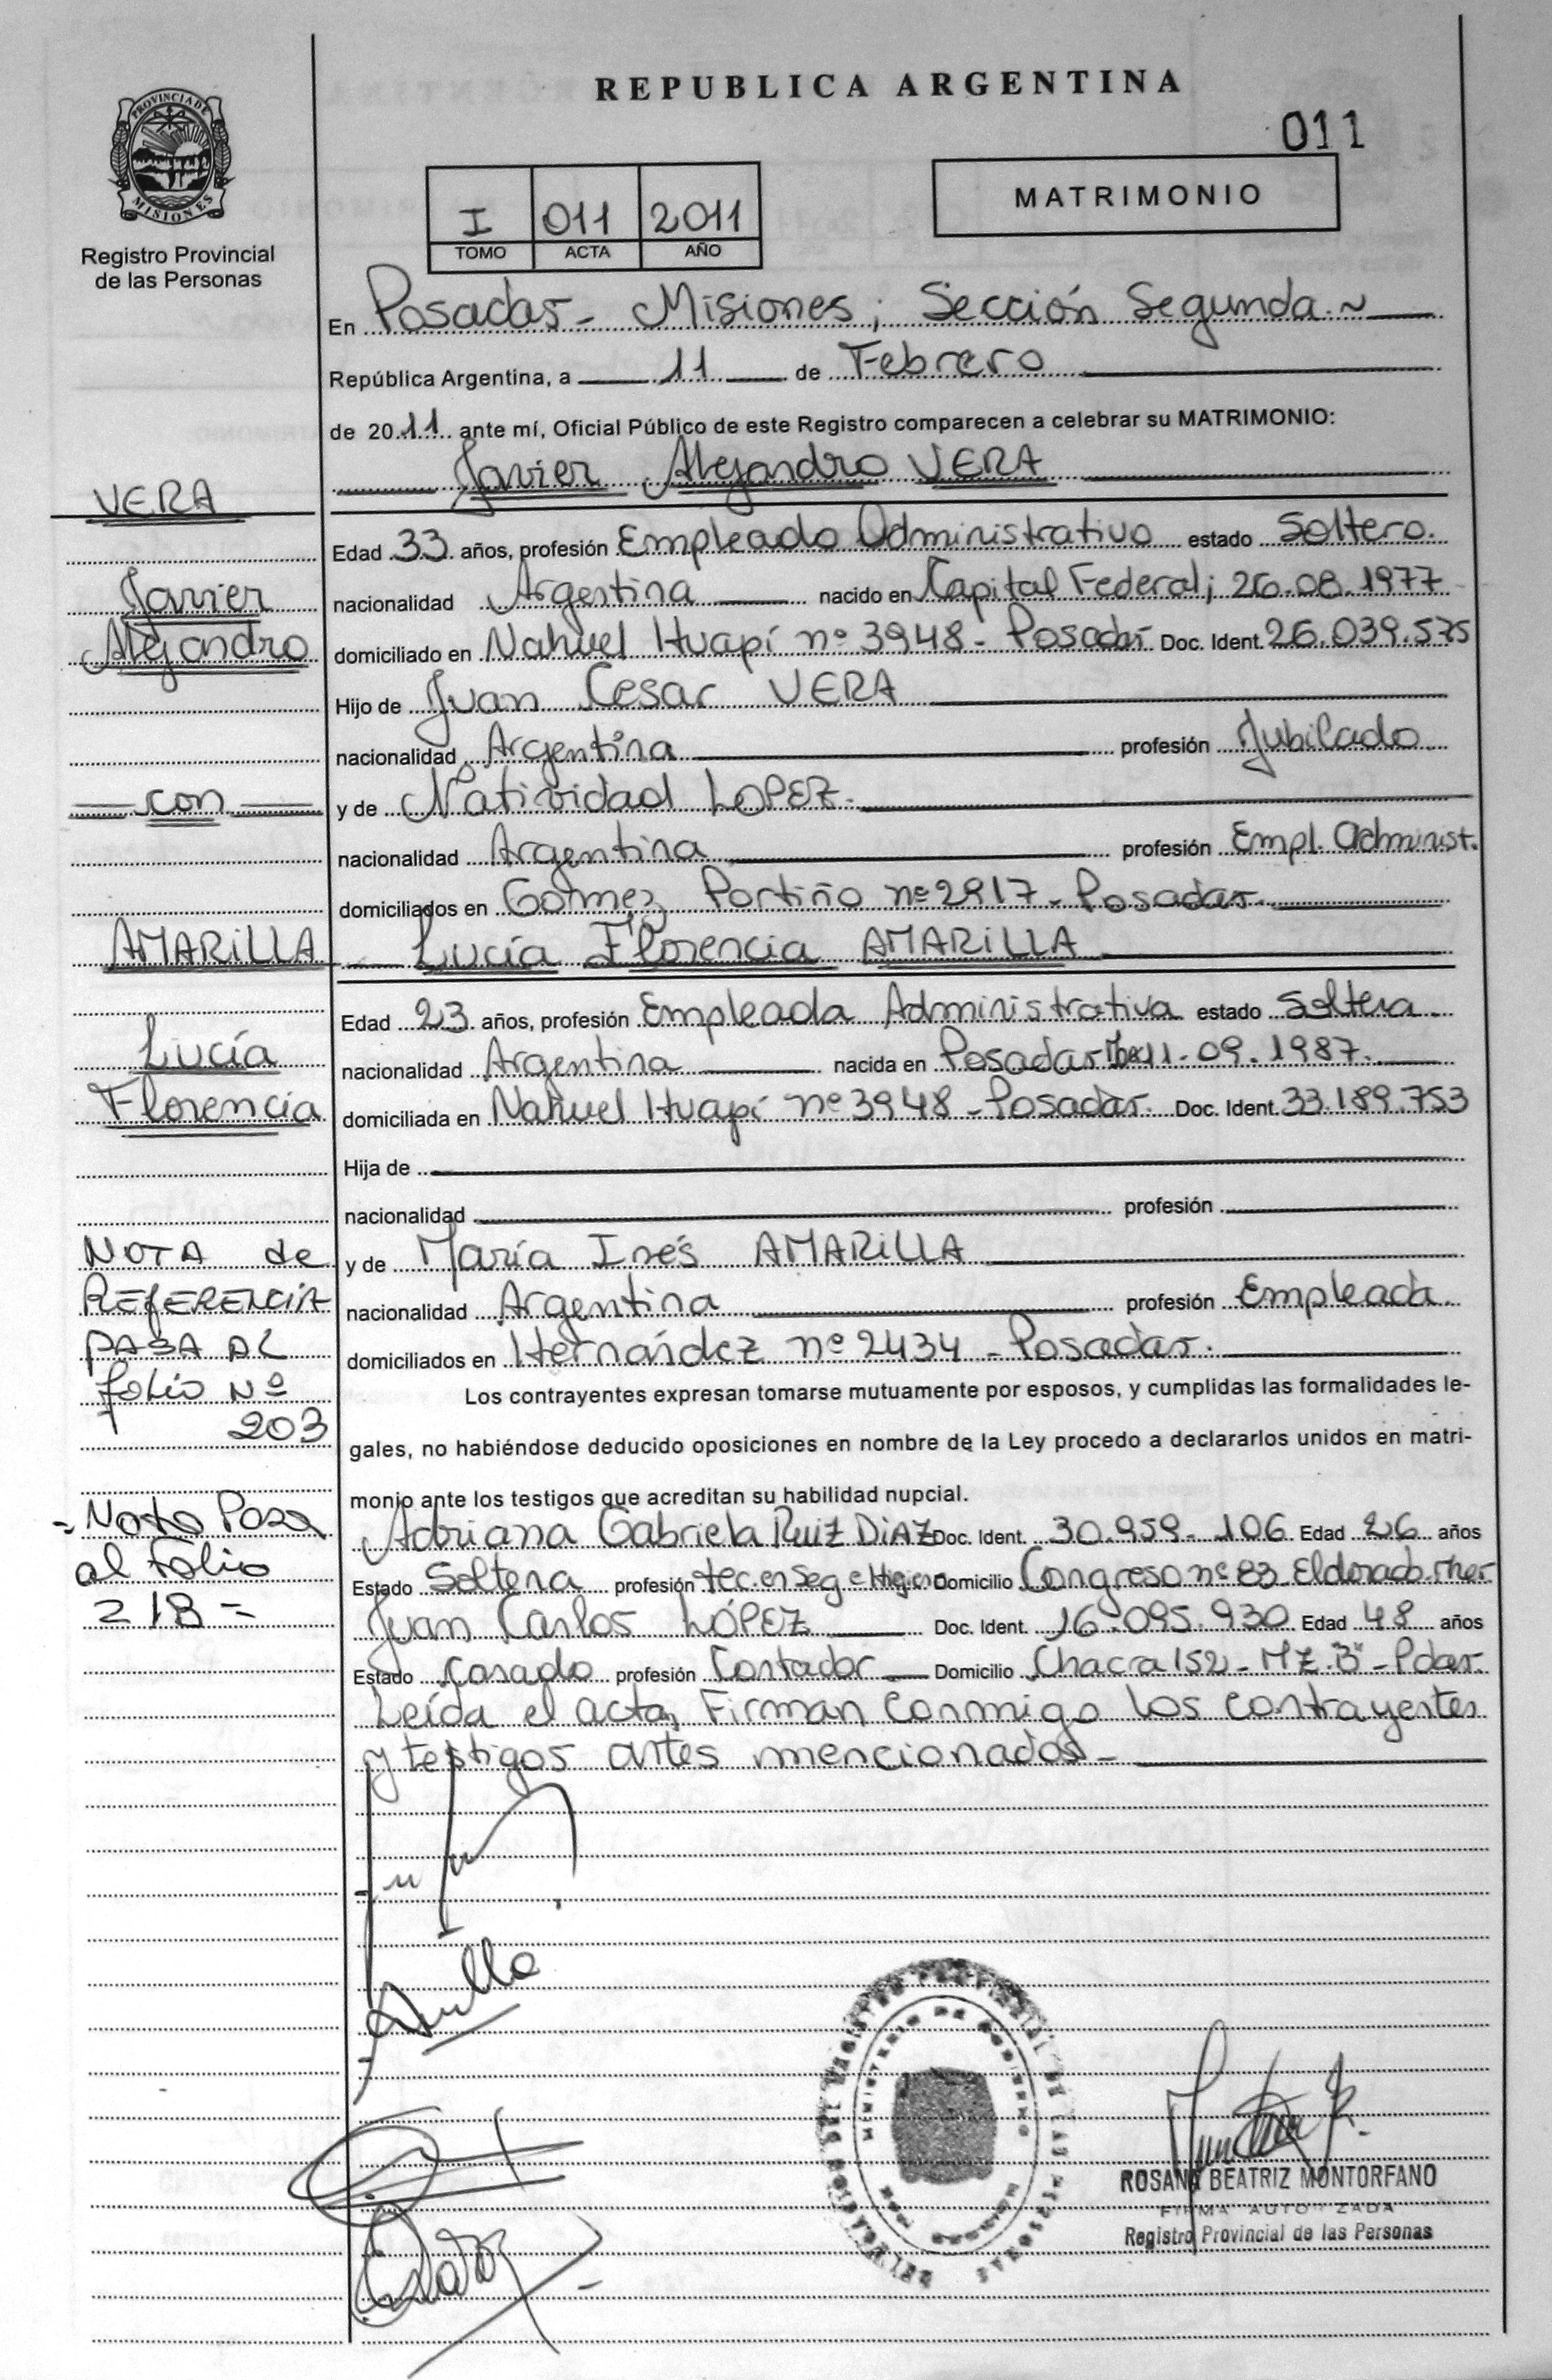 REPUBLICA ARGENTINA
011
PROVINCIA DE
MISIONES
Registro Provincial
de las Personas
I 011 2011
TOMO ACTA AÑO
MATRIMONIO
En Posadas - Misiones; Sección Segunda.~
República Argentina, a 11 de Febrero
de 2011 ante mí, Oficial Público de este Registro comparecen a celebrar su MATRIMONIO:
Javier Alejandro VERA
VERA
Edad 33 años, profesión Empleado Administrativo estado Soltero.
Javier
nacionalidad Argentina nacido en Capital Federal; 26.08.1977
Alejandro
domiciliado en Nahuel Huapí nº 3948 - Posadas Doc. Ident. 26.039.575
Hijo de Juan Cesar VERA
nacionalidad Argentina profesión Jubilado
con
y de Natividad LOPEZ.
nacionalidad Argentina profesión Empl. Administ.
domiciliados en Gomez Portiño nº 2917 - Posadas.
AMARILLA
Lucía Florencia AMARILLA
Edad 23 años, profesión Empleada Administrativa estado Soltera.
Lucía
nacionalidad Argentina nacida en Posadas 11.09.1987.
Florencia
domiciliada en Nahuel Huapí nº 3948 - Posadas. Doc. Ident. 33.189.753
Hija de
nacionalidad profesión
NOTA de
y de María Inés AMARILLA
REFERENCIA
nacionalidad Argentina profesión Empleada.
PASA AL
domiciliados en Hernández nº 2434 - Posadas.
folio Nº
203
Los contrayentes expresan tomarse mutuamente por esposos, y cumplidas las formalidades le-
gales, no habiéndose deducido oposiciones en nombre de la Ley procedo a declararlos unidos en matri-
monio ante los testigos que acreditan su habilidad nupcial.
- Nota Pasa
al Folio
218 =
Adriana Gabriela RUIZ DIAZ Doc. Ident. 30.959.106 Edad 26 años
Estado Soltera profesión tec. en Seg e Higiene Domicilio Congreso nº 83 Eldorado
Juan Carlos LÓPEZ Doc. Ident. 16.095.930 Edad 48 años
Estado Casado profesión Contador Domicilio Chacra 152 - MZ. "B" - Pdas.
Leída el acta, Firman conmigo los contrayentes
y testigos antes mencionados -
REGISTRO PROVINCIAL DE LAS PERSONAS
MINISTERIO DE GOBIERNO
ROSANA BEATRIZ MONTORFANO
FIRMA AUTORIZADA
Registro Provincial de las Personas